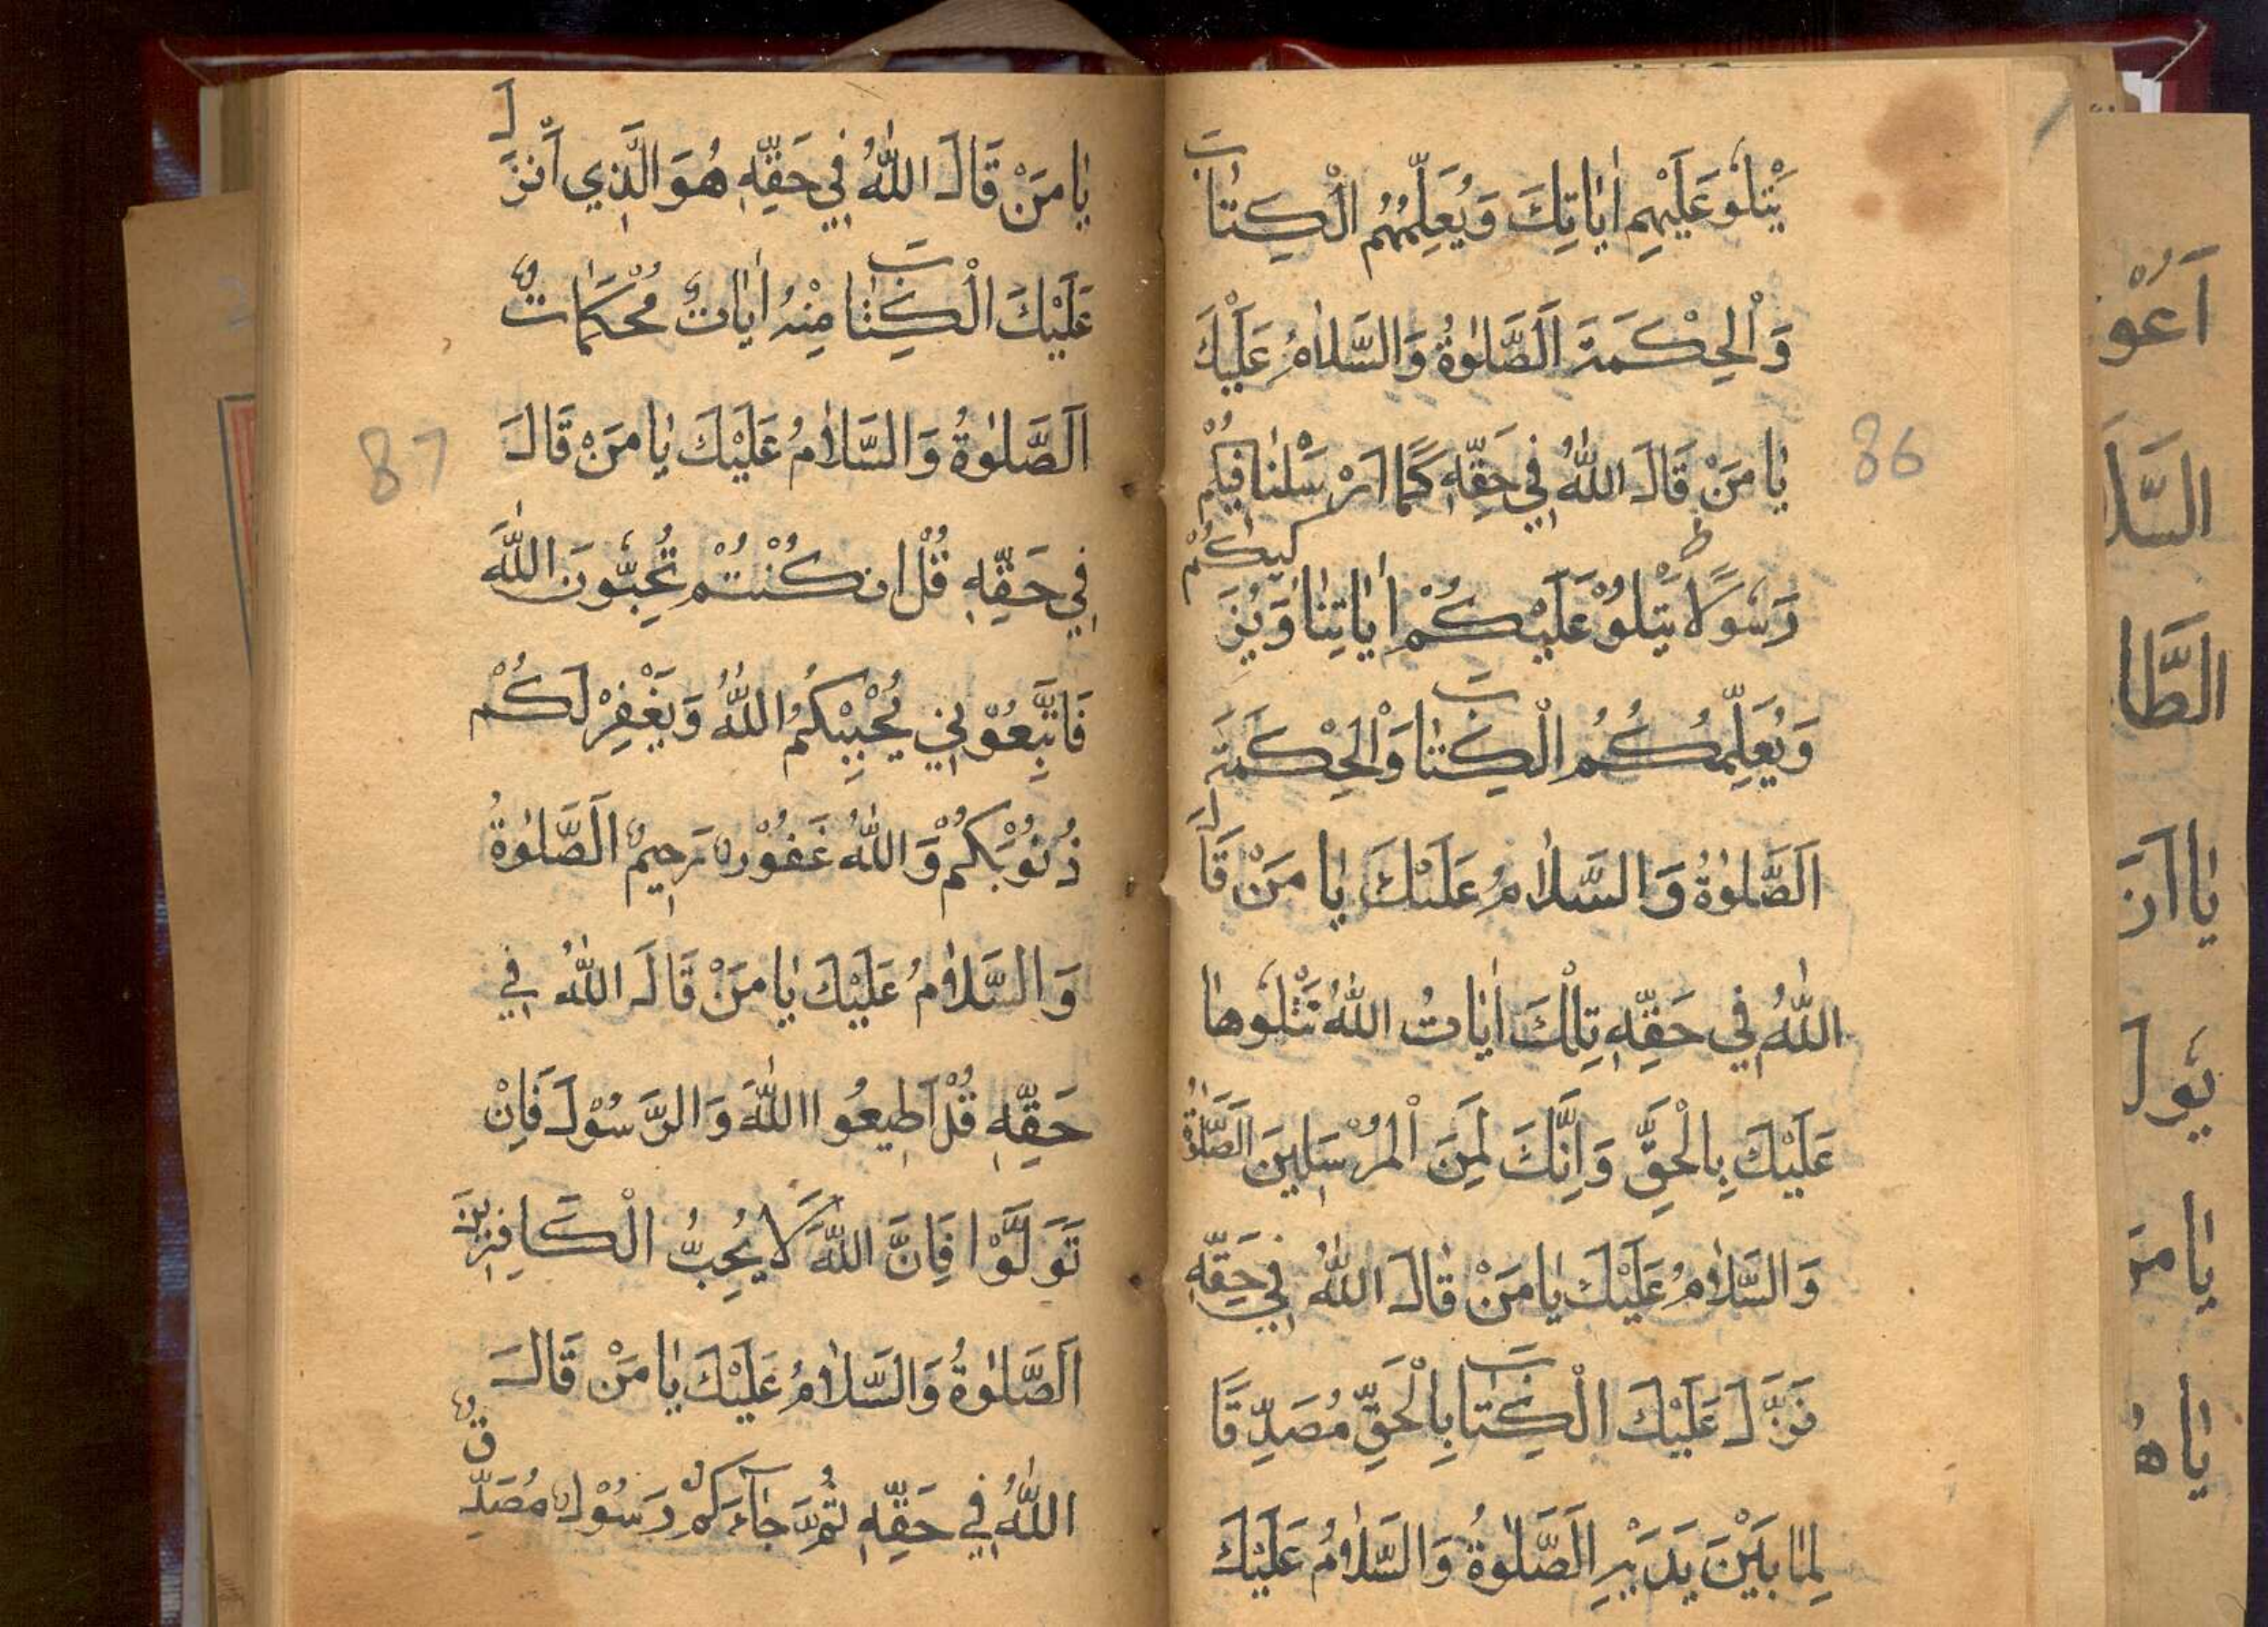 يَتْلُو عَلَيْهِمْ اٰيَاتِكَ وَيُعَلِّمُهُمُ الْكِتَابَ
وَالْحِكْمَةَ اَلصَّلٰوةُ وَالسَّلَامُ عَلَيْكَ
يَا مَنْ قَالَ اللّٰهُ فِي حَقِّهِ كَمَا اَرْسَلْنَا فِيكُمْ
رَسُولًا يَتْلُو عَلَيْكُمْ اٰيَاتِنَا وَيُزَكِّيكُمْ
وَيُعَلِّمُكُمُ الْكِتَابَ وَالْحِكْمَةَ
اَلصَّلٰوةُ وَالسَّلَامُ عَلَيْكَ يَا مَنْ قَالَ
اللّٰهُ فِي حَقِّهِ تِلْكَ اٰيَاتُ اللّٰهِ نَتْلُوهَا
عَلَيْكَ بِالْحَقِّ وَاِنَّكَ لَمِنَ الْمُرْسَلِينَ اَلصَّلٰوةُ
وَالسَّلَامُ عَلَيْكَ يَا مَنْ قَالَ اللّٰهُ فِي حَقِّهِ
نَزَّلَ عَلَيْكَ الْكِتَابَ بِالْحَقِّ مُصَدِّقًا
لِمَا بَيْنَ يَدَيْهِ اَلصَّلٰوةُ وَالسَّلَامُ عَلَيْكَ
86
يَا مَنْ قَالَ اللّٰهُ فِي حَقِّهِ هُوَ الَّذِي اَنْزَلَ
عَلَيْكَ الْكِتَابَ مِنْهُ اٰيَاتٌ مُحْكَمَاتٌ
اَلصَّلٰوةُ وَالسَّلَامُ عَلَيْكَ يَا مَنْ قَالَ
فِي حَقِّهِ قُلْ ان كُنْتُمْ تُحِبُّونَ اللّٰهَ
فَاتَّبِعُوْنِي يُحْبِبْكُمُ اللّٰهُ وَيَغْفِرْ لَكُمْ
ذُنُوْبَكُمْ وَاللّٰهُ غَفُوْرٌ رَحِيمٌ اَلصَّلٰوةُ
وَالسَّلَامُ عَلَيْكَ يَا مَنْ قَالَ اللّٰهُ فِي
حَقِّهِ قُلْ اَطِيعُوا اللّٰهَ وَالرَّسُوْلَ فَاِنْ
تَوَلَّوْا فَاِنَّ اللّٰهَ لَا يُحِبُّ الْكَافِرِينَ
اَلصَّلٰوةُ وَالسَّلَامُ عَلَيْكَ يَا مَنْ قَالَ
اللّٰهُ فِي حَقِّهِ ثُمَّ جَآءَكُمْ رَسُوْلٌ مُصَدِّقٌ
87
اَعُو
السَّلَا
الطَّا
يَا اَنَ
يَوَل
يَا مَن
يَا هُ